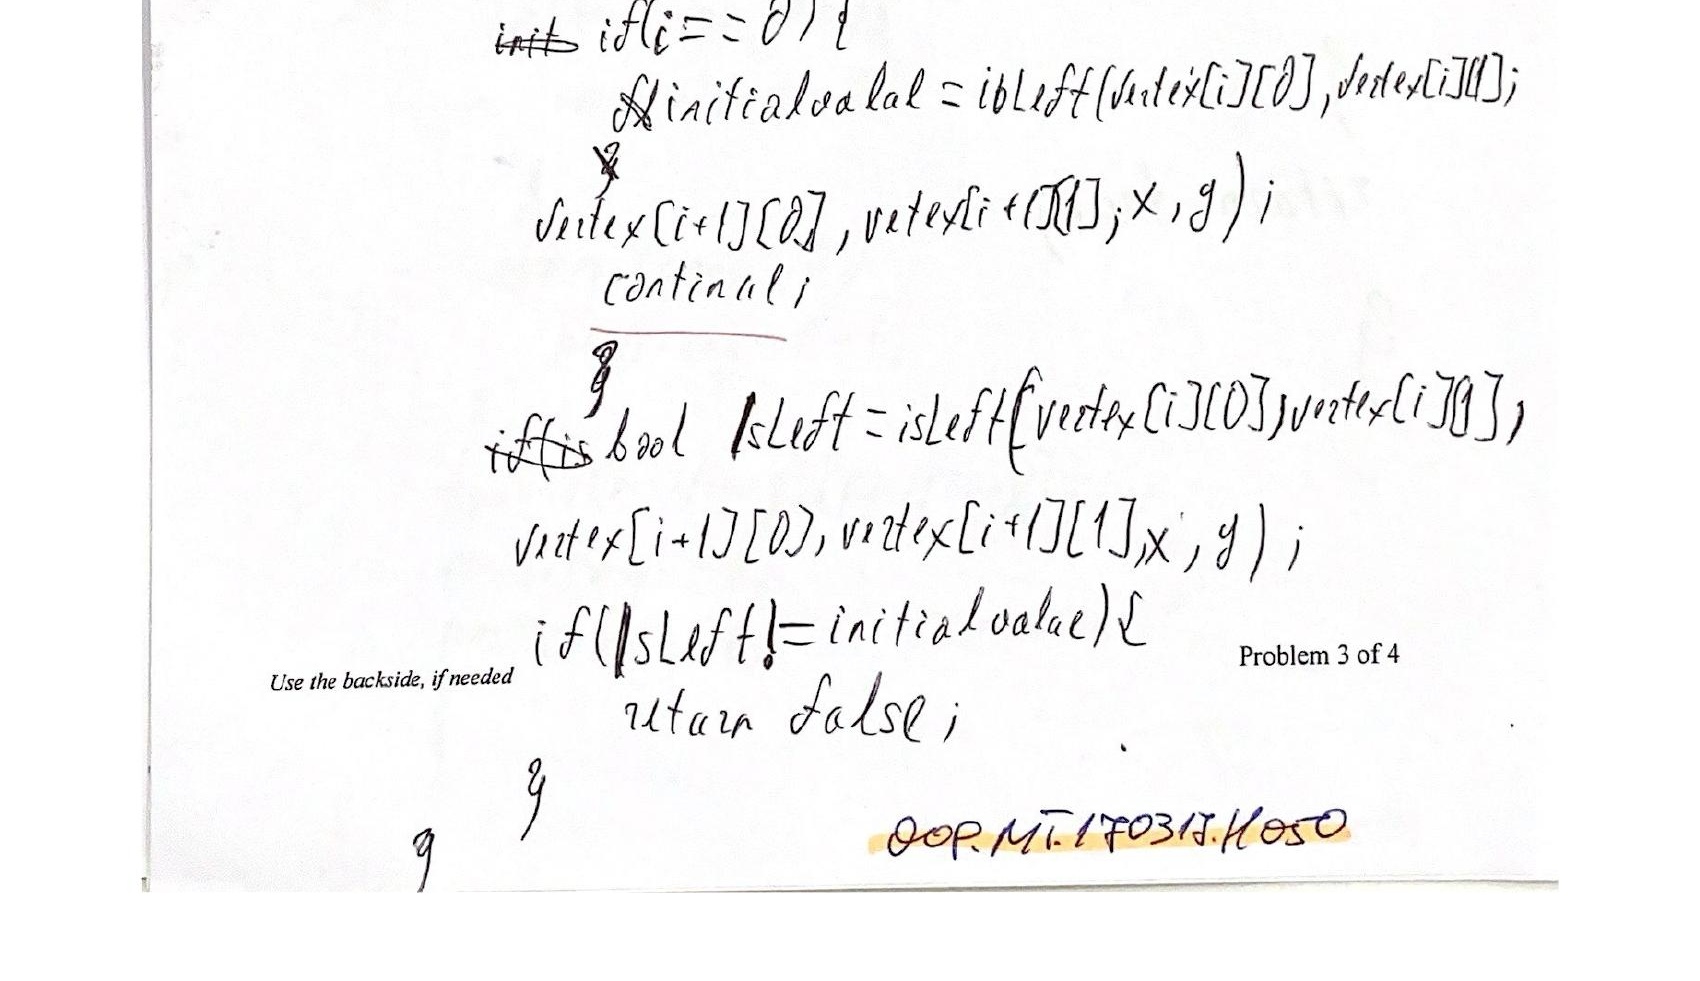 if(i==0){
initialvalal = isLeft(vertex[i][0], vertex[i][1];
vertex[i+1][0], vetex[i+1][1], x, y);
continue;
}
bool IsLeft = isLeft(vertex[i][0], vertex[i][1],
vertex[i+1][0], vertex[i+1][1], x, y);
if(IsLeft != initialvalue){
Problem 3 of 4
Use the backside, if needed
return false;
}
OOP.MT.170317.H050
}